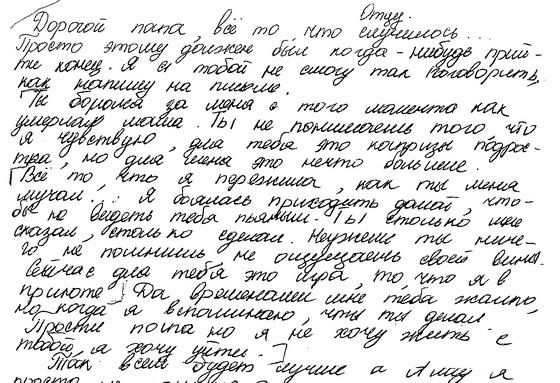 Отцу.
Дорогой папа, всё то что случилось...
Просто этому должен был когда-нибудь прий-
ти конец. Я с тобой не смогу так поговорить,
как напишу на письме.
Ты боролся за меня с того момента как
умерла мама. Ты не понимаешь того, что
я чувствую, для тебя это капризы подрос-
тка, но для меня это нечто большее.
[Всё то, что я пережила, как ты меня
мучал... Я боялась приходить домой, что-
бы не видеть тебя пьяным. Ты столько мне
сказал, столько сделал. Неужели ты ниче-
го не помнишь, не ощущаешь своей вины.
Сейчас для тебя это игра, то, что я в
приюте] Да временами мне тебя жалко,
но когда я вспоминаю, что ты делал
Прости папа но я не хочу жить с
тобой, я хочу уйти.]
Так всем будет лучше а я
просто не